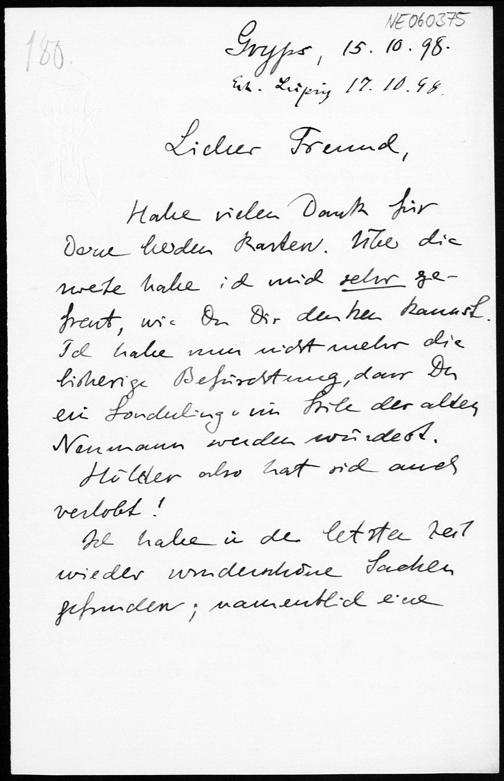 NE060375
180.
Gryps, 15.10.98.
Erh. Leipzig 17.10.98
Lieber Freund,
Habe vielen Dank für
Deine beiden Karten. Über die
zweite habe ich mich sehr ge-
freut, wie Du Dir denken kannst.
Ich habe nun nicht mehr die
bisherige Befürchtung, dass Du
ein Sonderling im Stile der alten
Neumann werden würdest.
Hölder also hat sich auch
verlobt!
Ich habe in der letzten Zeit
wieder wunderschöne Sachen
gefunden; namentlich eine